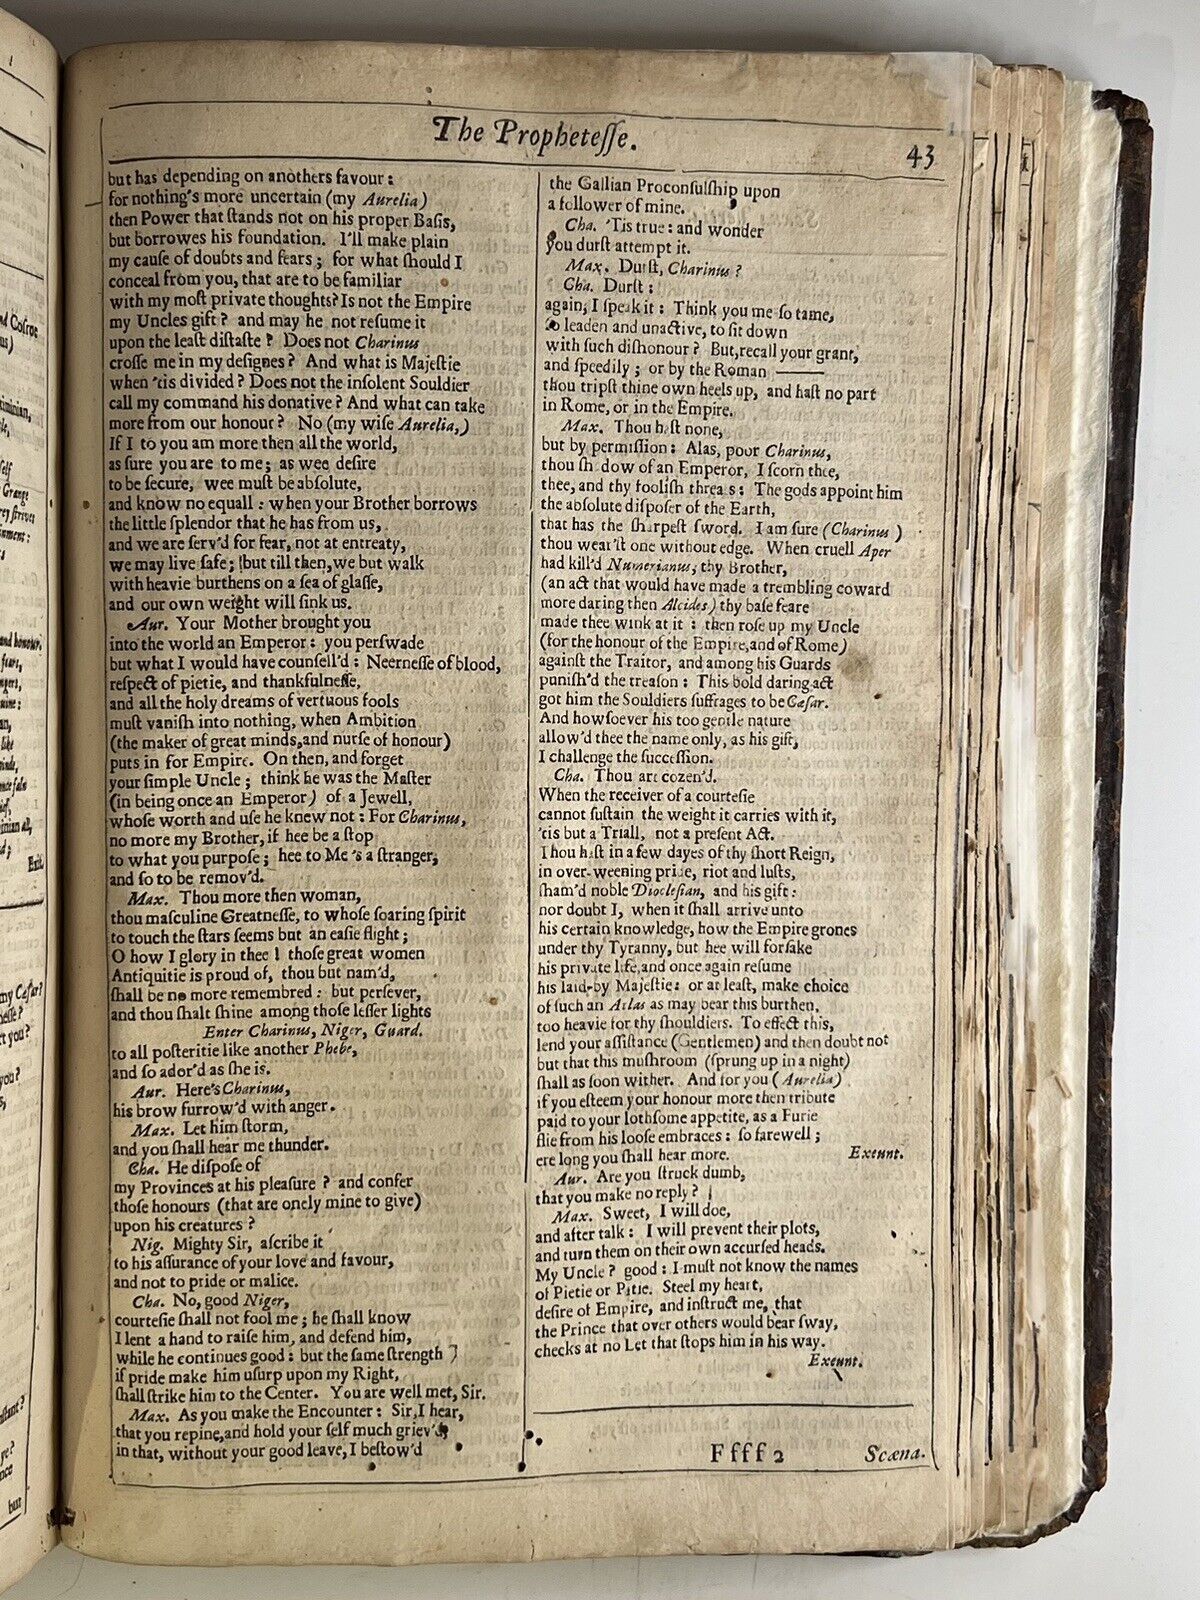 The Prophetesse.
43
but has depending on anothers favour:
for nothing's more uncertain (my Aurelia)
then Power that stands not on his proper Basis,
but borrowes his foundation. I'll make plain
my cause of doubts and fears; for what should I
conceal from you, that are to be familiar
with my most private thoughts? Is not the Empire
my Uncles gift? and may he not resume it
upon the least distaste? Does not Charinus
crosse me in my designes? And what is Majestie
when 'tis divided? Does not the insolent Souldier
call my command his donative? And what can take
more from our honour? No (my wise Aurelia,)
If I to you am more then all the world,
as sure you are to me; as wee desire
to be secure, wee must be absolute,
and know no equall: when your Brother borrows
the little splendor that he has from us,
and we are serv'd for fear, not at entreaty,
we may live safe; but till then, we but walk
with heavie burthens on a sea of glasse,
and our own weight will sink us.
Aur. Your Mother brought you
into the world an Emperor: you perswade
but what I would have counsell'd: Neernesse of blood,
respect of pietie, and thankfulnesse,
and all the holy dreams of vertuous fools
must vanish into nothing, when Ambition
(the maker of great minds, and nurse of honour)
puts in for Empire. On then, and forget
your simple Uncle; think he was the Master
(in being once an Emperor) of a Jewell,
whose worth and use he knew not: For Charinus,
no more my Brother, if hee be a stop
to what you purpose; hee to Me 's a stranger,
and so to be remov'd.
Max. Thou more then woman,
thou masculine Greatnesse, to whose soaring spirit
to touch the stars seems but an easie flight;
O how I glory in thee! those great women
Antiquitie is proud of, thou but nam'd,
shall be no more remembred: but persever,
and thou shalt shine among those lesser lights
Enter Charinus, Niger, Guard.
to all posteritie like another Phebe,
and so ador'd as she is.
Aur. Here's Charinus,
his brow furrow'd with anger.
Max. Let him storm,
and you shall hear me thunder.
Cha. He dispose of
my Provinces at his pleasure? and confer
those honours (that are onely mine to give)
upon his creatures?
Nig. Mighty Sir, ascribe it
to his assurance of your love and favour,
and not to pride or malice.
Cha. No, good Niger,
courtesie shall not fool me; he shall know
I lent a hand to raise him, and defend him,
while he continues good: but the same strength
if pride make him usurp upon my Right,
shall strike him to the Center. You are well met, Sir.
Max. As you make the Encounter: Sir, I hear,
that you repine, and hold your self much griev'd,
in that, without your good leave, I bestow'd
the Gallian Proconsulship upon
a follower of mine.
Cha. 'Tis true: and wonder
you durst attempt it.
Max. Durst, Charinus?
Cha. Durst:
again, I speak it: Think you me so tame,
so leaden and unactive, to sit down
with such dishonour? But, recall your grant,
and speedily; or by the Roman ——
thou tripst thine own heels up, and hast no part
in Rome, or in the Empire.
Max. Thou hast none,
but by permission: Alas, poor Charinus,
thou shadow of an Emperor, I scorn thee,
thee, and thy foolish threats: The gods appoint him
the absolute disposer of the Earth,
that has the sharpest sword. I am sure (Charinus)
thou wear'st one without edge. When cruell Aper
had kill'd Numerianus, thy Brother,
(an act that would have made a trembling coward
more daring then Alcides) thy base feare
made thee wink at it: then rose up my Uncle
(for the honour of the Empire, and of Rome)
against the Traitor, and among his Guards
punish'd the treason: This bold daring act
got him the Souldiers suffrages to be Cæsar.
And howsoever his too gentle nature
allow'd thee the name only, as his gift,
I challenge the succession.
Cha. Thou art cozen'd.
When the receiver of a courtesie
cannot sustain the weight it carries with it,
'tis but a Triall, not a present Act.
Thou hast in a few dayes of thy short Reign,
in over-weening pride, riot and lusts,
sham'd noble Dioclesian, and his gift:
nor doubt I, when it shall arrive unto
his certain knowledge, how the Empire grones
under thy Tyranny, but hee will forsake
his private life, and once again resume
his laid-by Majestie: or at least, make choice
of such an Atlas as may bear this burthen,
too heavie for thy shoulders. To effect this,
lend your assistance (Gentlemen) and then doubt not
but that this mushroom (sprung up in a night)
shall as soon wither. And for you (Aurelia)
if you esteem your honour more then tribute
paid to your lothsome appetite, as a Furie
flie from his loose embraces: so farewell;
ere long you shall hear more. Exeunt.
Aur. Are you struck dumb,
that you make no reply?
Max. Sweet, I will doe,
and after talk: I will prevent their plots,
and turn them on their own accursed heads.
My Uncle? good: I must not know the names
of Pietie or Pitie. Steel my heart,
desire of Empire, and instruct me, that
the Prince that over others would bear sway,
checks at no Let that stops him in his way.
Exeunt.
Ffff2
Scæna.